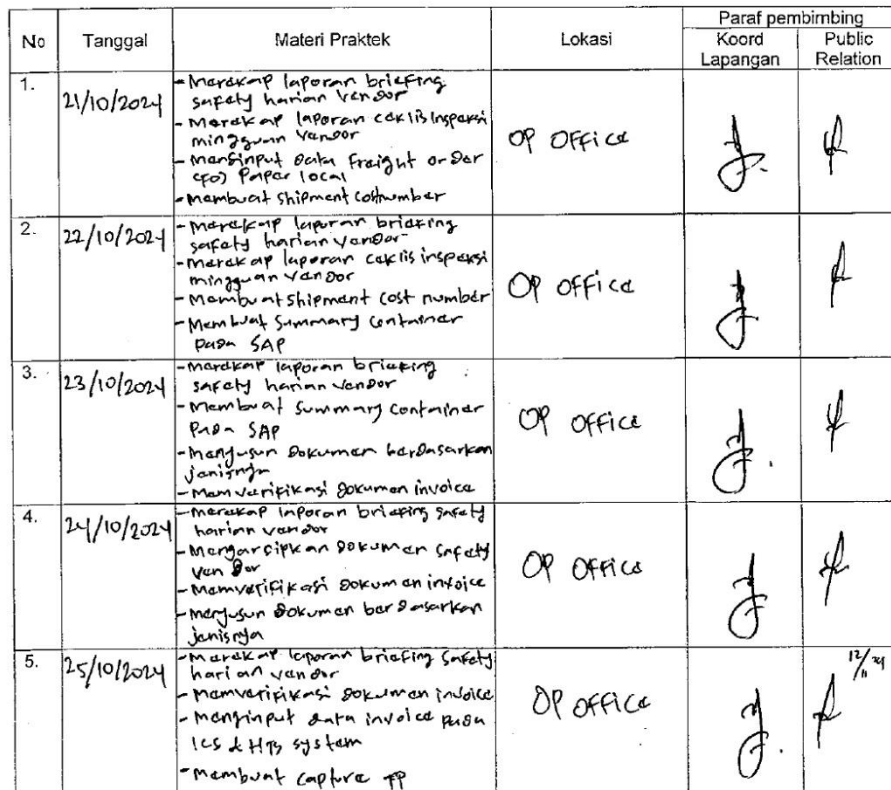 No Tanggal Materi Praktek Lokasi Paraf pembimbing
Koord Lapangan Public Relation
1. 21/10/2024
- Merekap laporan briefing
safety harian vendor
- Merekap laporan ceklis inspeksi
mingguan vendor
- Menginput data freight order
(FO) Paper local
- Membuat shipment costnumber
OP Office
2. 22/10/2024
- Merekap laporan briefing
safety harian vendor
- Merekap laporan ceklis inspeksi
mingguan vendor
- Membuat shipment cost number
- Membuat Summary Container
pada SAP
OP Office
3. 23/10/2024
- Merekap laporan briefing
safety harian vendor
- Membuat Summary Container
pada SAP
- Menyusun dokumen berdasarkan
jenisnya
- Memverifikasi dokumen invoice
OP Office
4. 24/10/2024
- Merekap laporan briefing safety
harian vendor
- Mengarsipkan dokumen safety
vendor
- Memverifikasi dokumen invoice
- Menyusun dokumen berdasarkan
jenisnya
OP Office
5. 25/10/2024
- Merekap laporan briefing safety
harian vendor
- Memverifikasi dokumen invoice
- Menginput data invoice pada
ICS & HTS system
- Membuat capture TP
OP Office
12/11 24